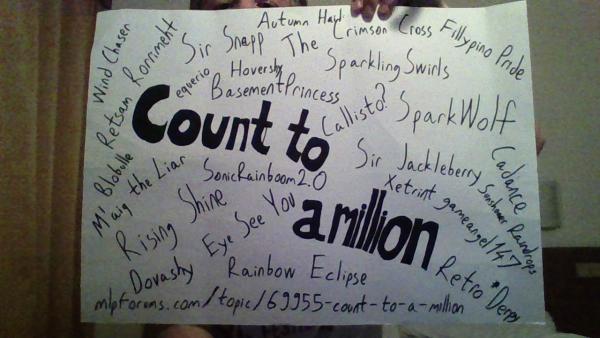 Autumn
Wind Chaser
Rorriment
Sir Snapp
The Crimson Cross
Fillypino Pride
Retsam
equerio
Hovershy
Sparkling Swirls
BasementPrincess
Count to
Callisto?
SparkWolf
Mr Blobulle
wig the Liar
SonicRainboom2.0
Sir Jackleberry
Cadance
Xetrint
Sunshower Raindrops
gameangel147
Rising Shine
Eye See You
a million
Dovashy
Rainbow Eclipse
Retro*Derpy
mlpforums.com/topic/69955-count-to-a-million